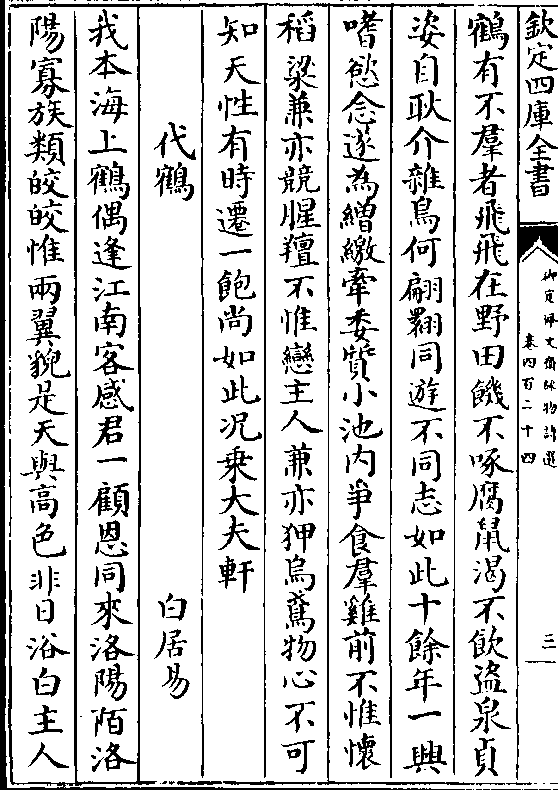 欽定四庫全書
御定佩文齋詠物詩選
卷四百二十四
三
鶴有不羣者飛飛在野田饑不啄腐鼠渴不飲盜泉貞
姿自耿介雜鳥何翩翾同遊不同志如此十餘年一興
嗜慾念遂為矰繳牽委質小池内爭食羣雞前不惟懷
稻粱兼亦競腥羶不惟戀主人兼亦狎烏鳶物心不可
知天性有時遷一飽尚如此况乗大夫軒
代鶴 白居易
我本海上鶴偶逢江南客感君一顧恩同來洛陽陌洛
陽寡族類皎皎惟兩翼貌是天與高色非日浴白主人